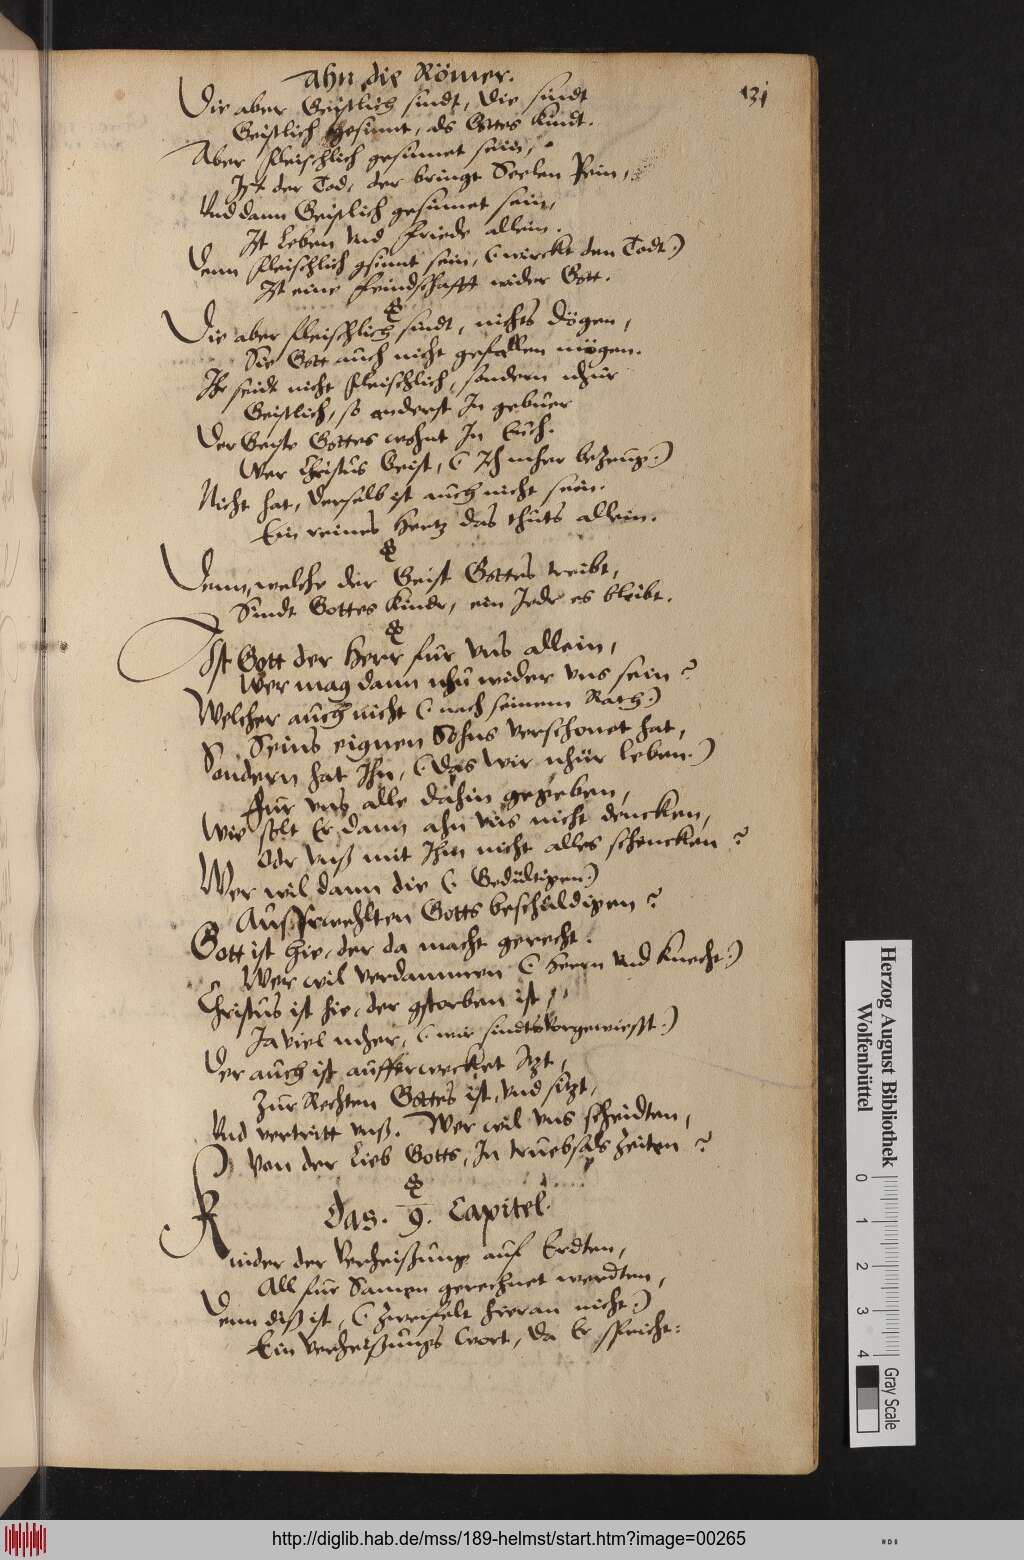 Ahn die Römer.
131
Die aber Geistlich sindt, die sindt
Geistlich gesinnt, als Gottes kindt.
Aber fleischlich gesinnet sein,
Ist der Tod, der bringt Seelen Pein,
Und dann Geistlich gesinnet sein,
Ist Leben Und friede allein.
Denn fleischlich gsinnt sein, (wirckt den Todt.)
Ist eine feindschafft wider Gott.
Die aber fleischlich sindt, nichts dögen,
Sie Gott auch nicht gefallen mögen.
Ihr seidt nicht fleischlich, sondern nhur
Geistlich, so anderst In gebuer
Der Geist Gottes wohnt In Euch.
Wer Christus Geist, (Ich nher bezeug.)
Nicht hat, derselb ist auch nicht sein.
Ein reines Hertz das thuts allein.
Denn, welche der Geist Gottes treibt,
Sindt Gottes Kinder, ein Jeder es bleibt.
Ist Gott der Herr fur Uns allein,
Wer mag dann nhu wider uns sein?
Welcher auch nicht (nach seinem Rath.)
Seins eignen Sohns verschonet hat,
Sondern hat Ihn, (das wir nhur leben.)
Fur uns alle dahin gegeben,
Wie solt Er dann ahn uns nicht dencken,
Odr Unß mit Ihm nicht alles schencken?
Wer wil dann die (Gedultigen)
Ausserwehlten Gotts beschuldigen?
Gott ist hie, der da macht gerecht.
Wer wil verdammen (Herrn Und Knecht.)
Christus ist hie, der gstorben ist,
Ja viel nher, (wir sindts Vorgewiesst.)
Der auch ist aufferwecket Itzt,
Zur Rechten Gottes ist, Und sitzt,
Und vertritt Unß. Wer wil uns scheidten,
Von der Lieb Gotts, In truebsals zeiten?
Das. 9. Capitel.
Kinder der Verheißung auf Erdten,
All fur Samen gerechnet werdten,
Denn diß ist, (zweifelt hieran nicht.)
Ein verheißungs wort, da Er spricht:
Herzog August Bibliothek
Wolfenbüttel
0 1 2 3 4
Gray Scale
http://diglib.hab.de/mss/189-helmst/start.htm?image=00265